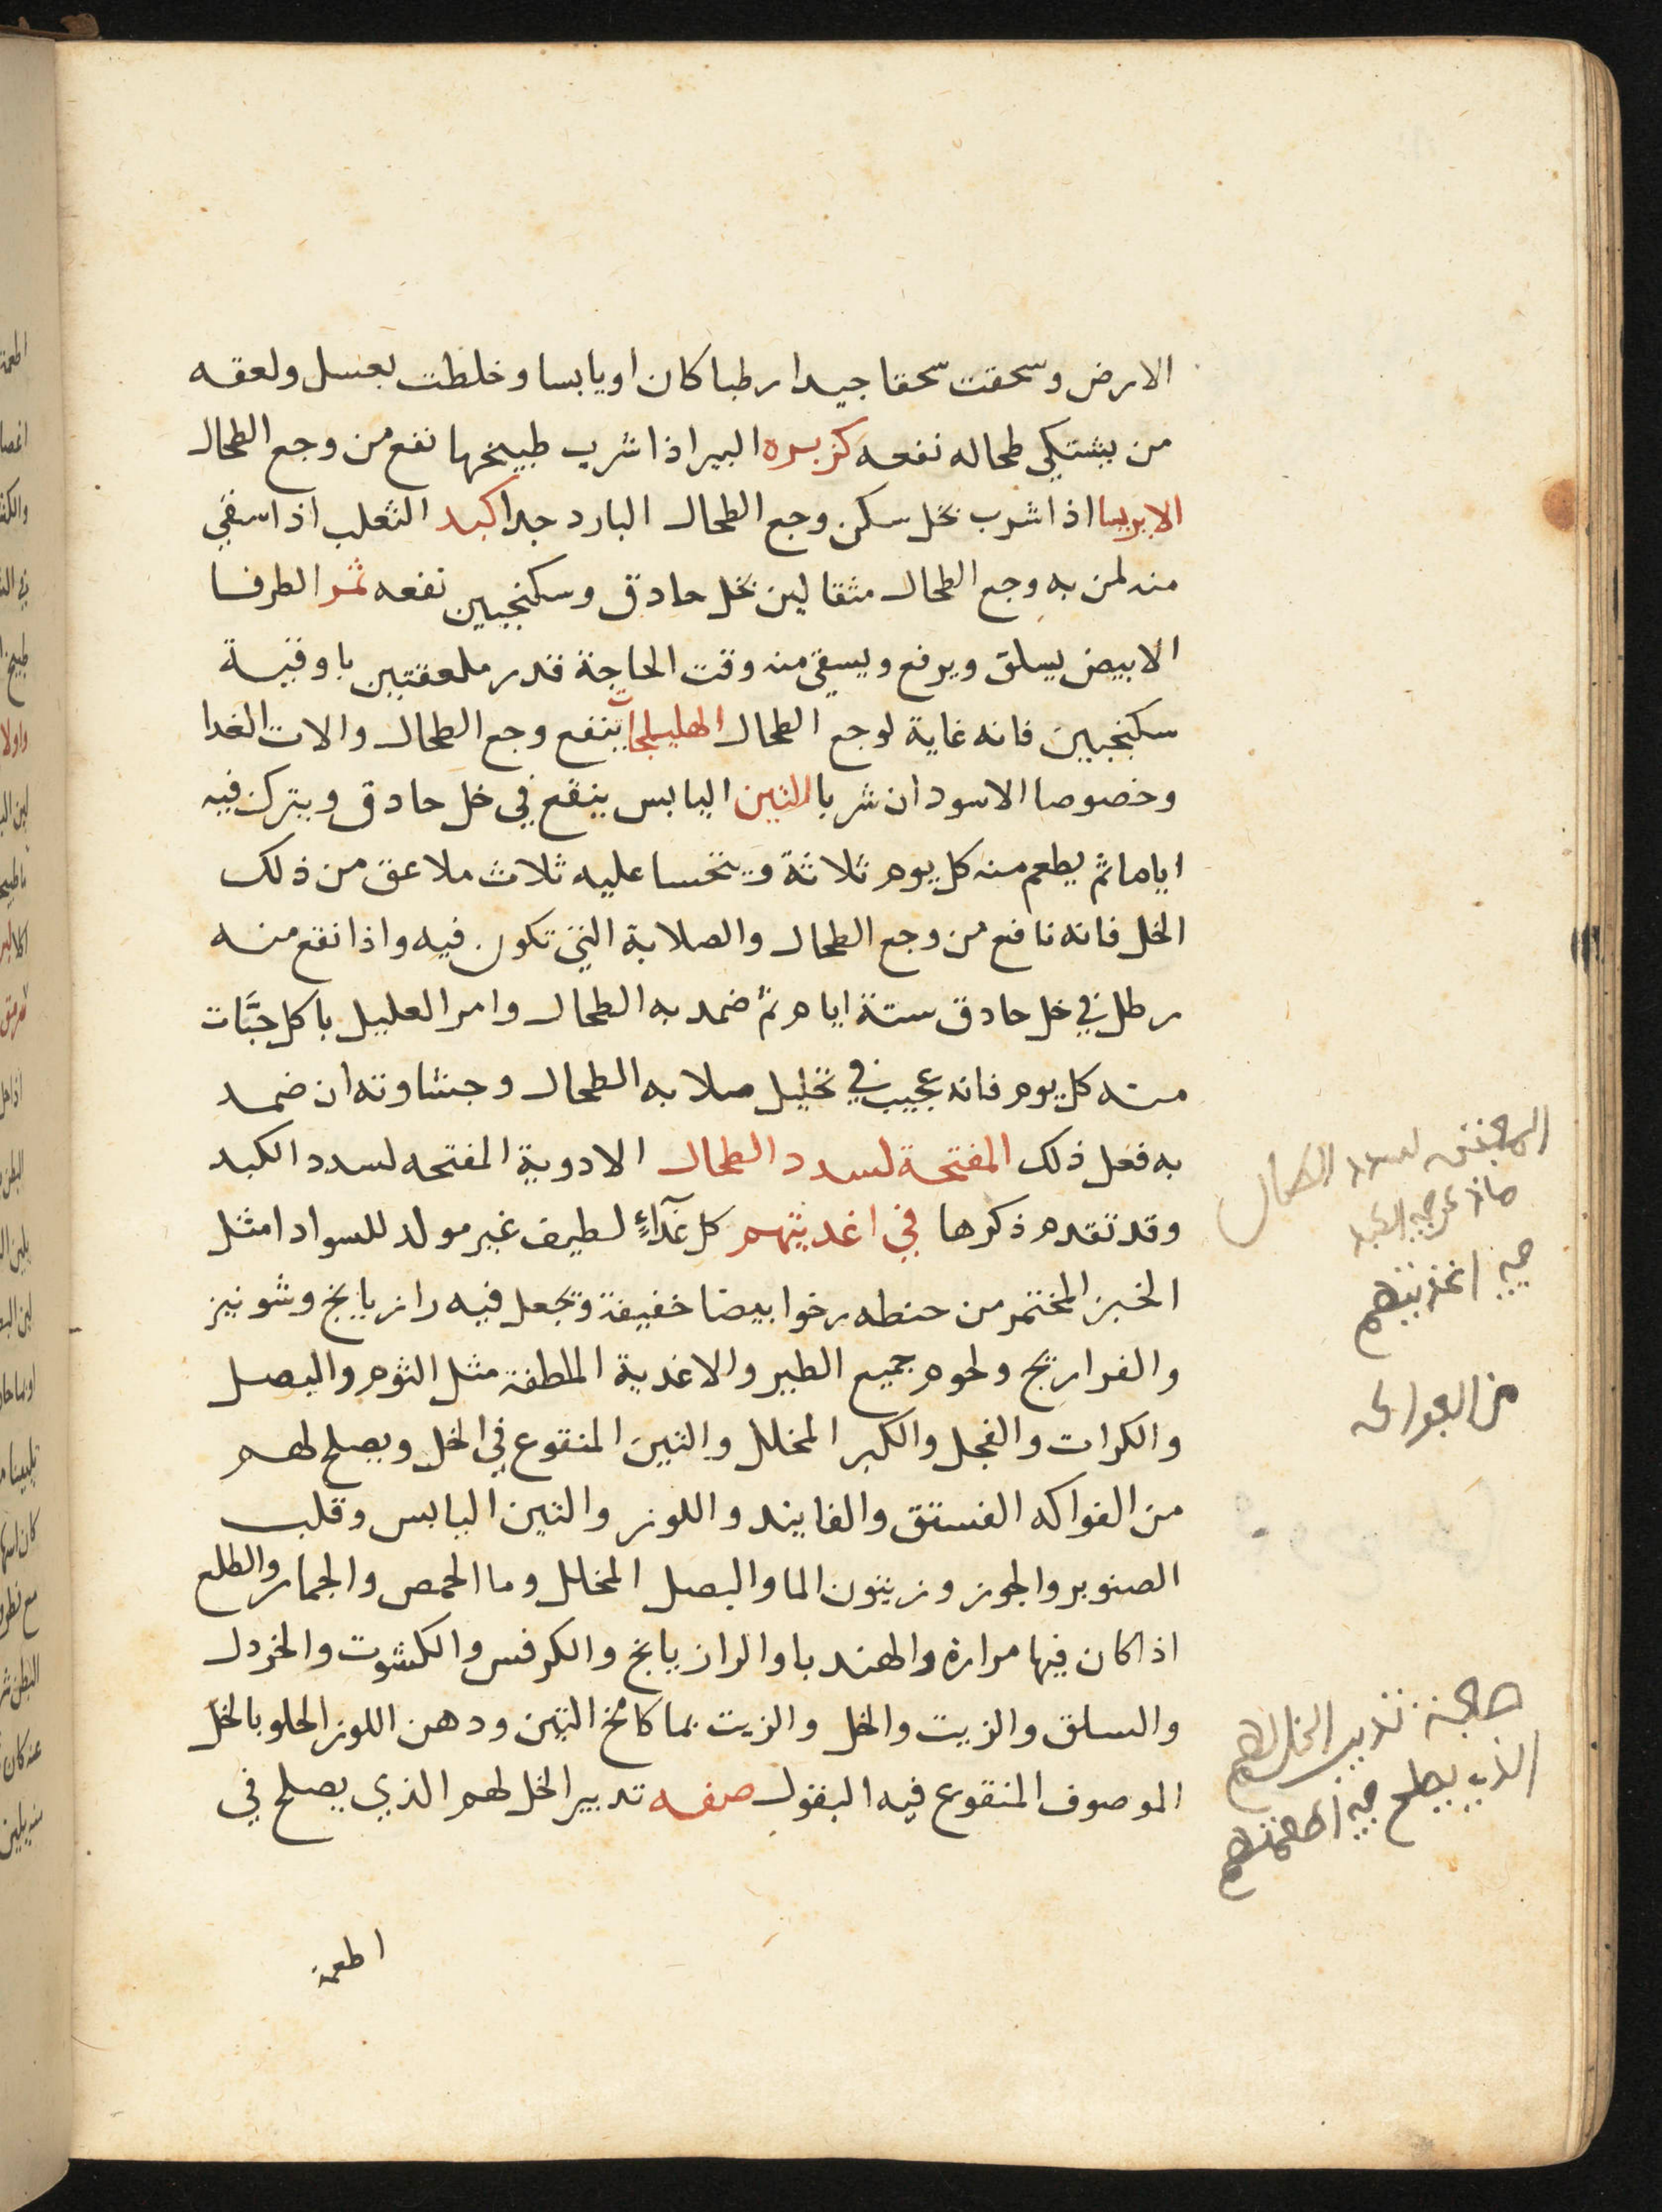 الارض وسحقت سحقا جيدا رطبا كان او يابسا وخلطت بعسل ولعقه
من يشتكي طحاله نفعه كزبره البير اذا شرب طبيخها نفع من وجع الطحال
الايريسا اذا شرب بخل سكن وجع الطحال البارد جدا كبد الثعلب اذا سقي
منه لمن به وجع الطحال مثقالين بخل حاذق وسكنجبين نفعه ثمر الطرفا
الابيض يسلق ويرفع ويسقى منه وقت الحاجة قدر ملعقتين باوقية
سكنجبين فانه غاية لوجع الطحال الهليلجات ينفع وجع الطحال والات الغدا
وخصوصا الاسود ان شربا التين اليابس ينقع في خل حادق ويترك فيه
اياما ثم يطعم منه كل يوم ثلاثة ويتحسا عليه ثلاث ملاعق من ذلك
الخل فانه نافع من وجع الطحال والصلابة التي تكون فيه واذا نقع منه
رطل في خل حادق ستة ايام ثم ضمد به الطحال وامر العليل باكل حبَّات
منه كل يوم فانه عجيب في تحليل صلابه الطحال وجشاوته ان ضمد
به فعل ذلك المفتحة لسدد الطحال الادوية المفتحه لسدد الكبد
وقد تقدم ذكرها في اغذيتهم كل غذآءٍ لطيف غير مولد للسوادا مثل
الخبز المختمر من حنطه رخوا بيضا خفيفة وتجعل فيه رازيانج وشونيز
والفراريج ولحوم جميع الطير والاغذية الملطفة مثل الثوم والبصل
والكرات والفجل والكبر المخلل والتين المنقوع في الخل ويصلح لهم
من الفواكه الفستق والفانيد واللوز والتين اليابس وقلب
الصنوبر والجوز وزيتون الما والبصل المخلل وما الحمص والجمار والطلع
اذا كان فيها مرارة والهندبا والرازيانج والكرفس والكشوت والخردل
والسلق والزيت والخل والزيت بما كامخ التين ودهن اللوز الحلو بالخل
الموصوف المنقوع فيه البقول صفه تدبير الخل لهم الذي يصلح في
اطعمة
لسدد الطحال
في اغذيتهم
من الفواكه
صفة تدبير الخل لهم
الذي يصلح في اطعمتهم